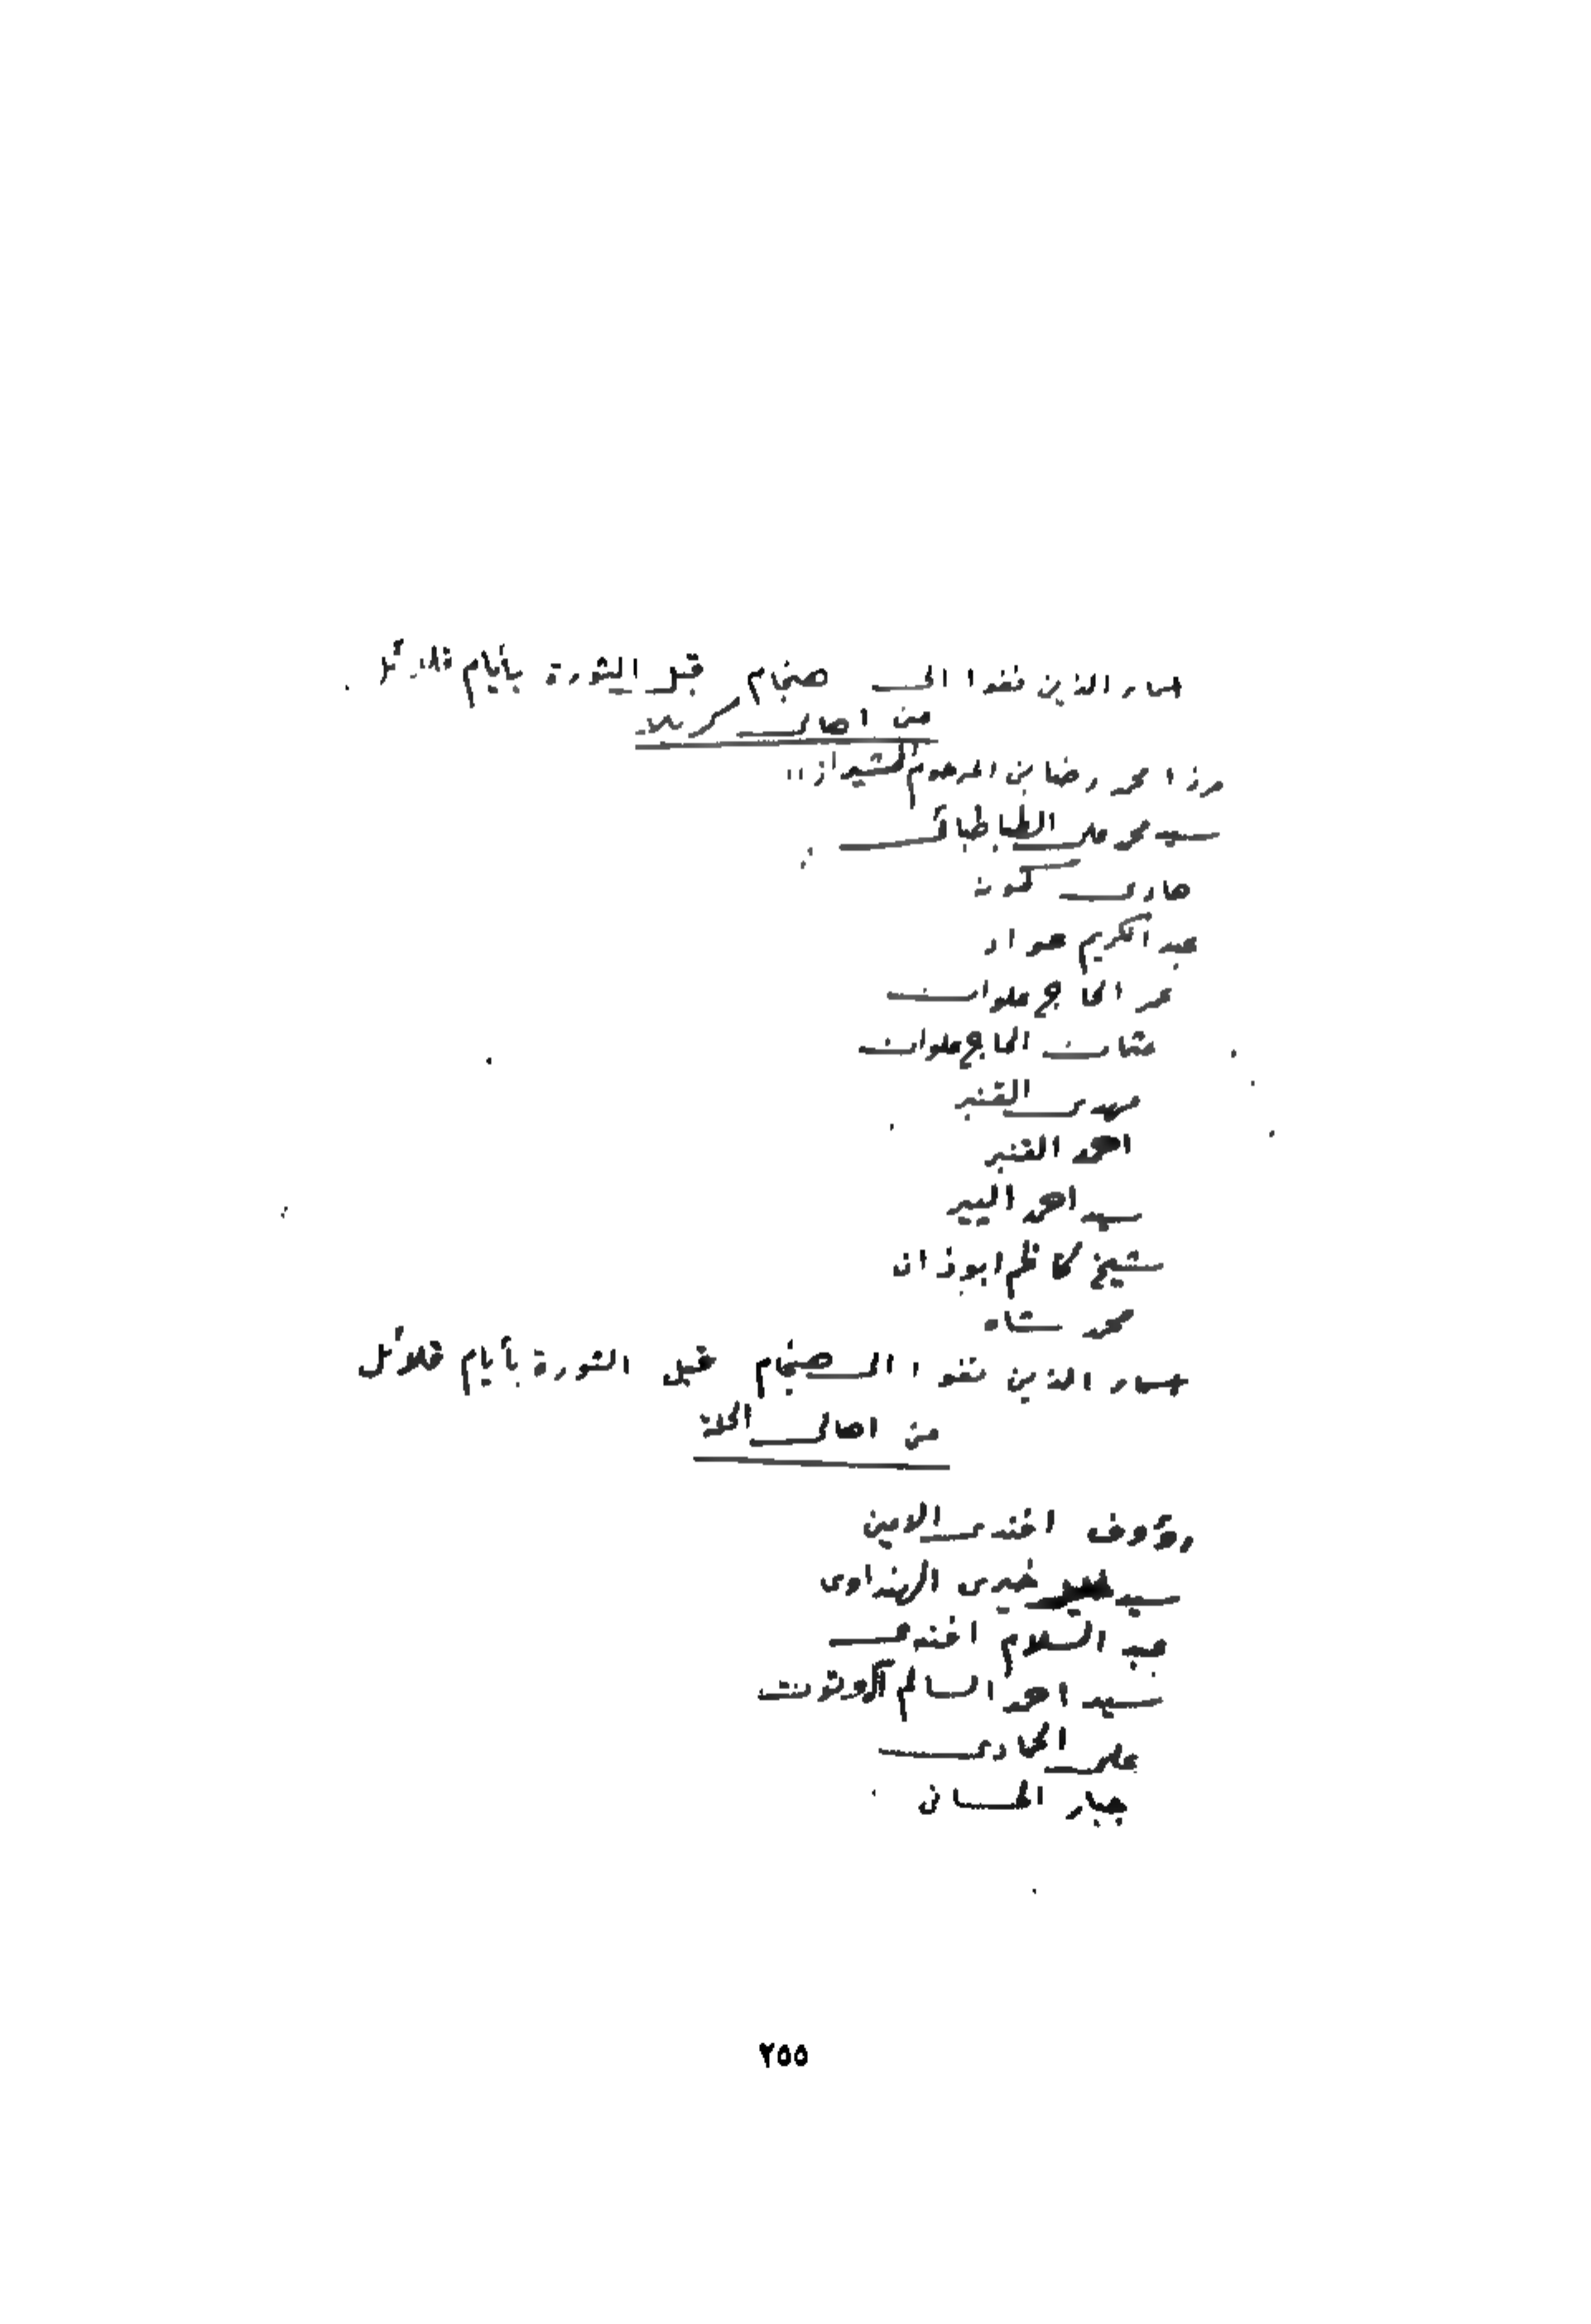 اسماء الذين نفوا الى هنجام قبل الثورة بأيام قلائل
من اهالي كربلاء
مرزا محمد رضا بن المرحوم الشيرازي
سيد محمد علي الطباطبائي
عبد الكريم عواد
عمر الحاج علوان
عثمان الحاج علوان
مهدي القنبر
احمد القنبر
سيد احمد البير
شيخ كاظم ابوذان
محمد شاه
اسماء الذين نفوا الى هنجام قبل الثورة بأيام قلائل
من اهالي الحلة
رؤوف افندي الامين
سيد خيري الهنداوي
عبد السلام افندي
سيد احمد السالم
علي الحمادي
جبار الحساني
٢٥٥